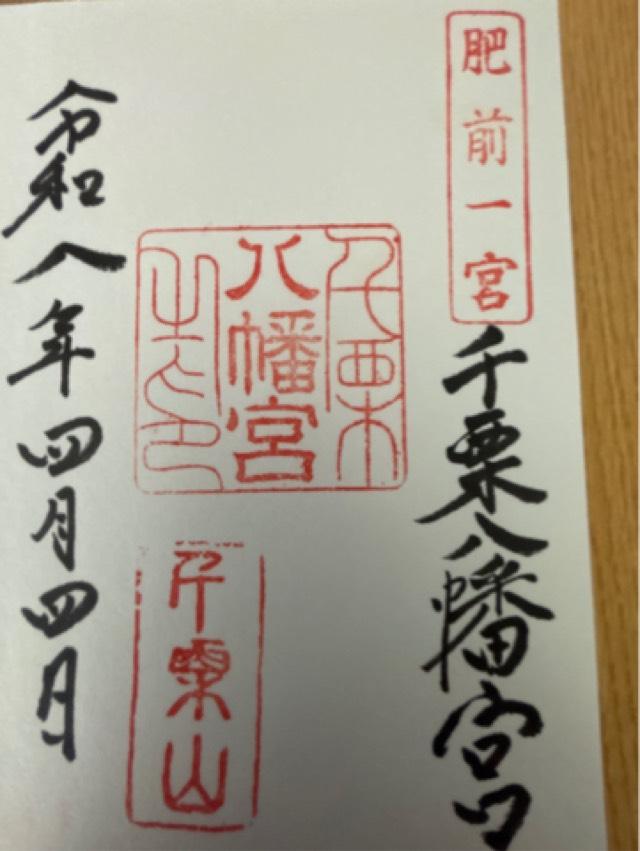 肥前一宮
千栗八幡宮
千栗
八幡宮
之印
千栗山
令和八年四月四日